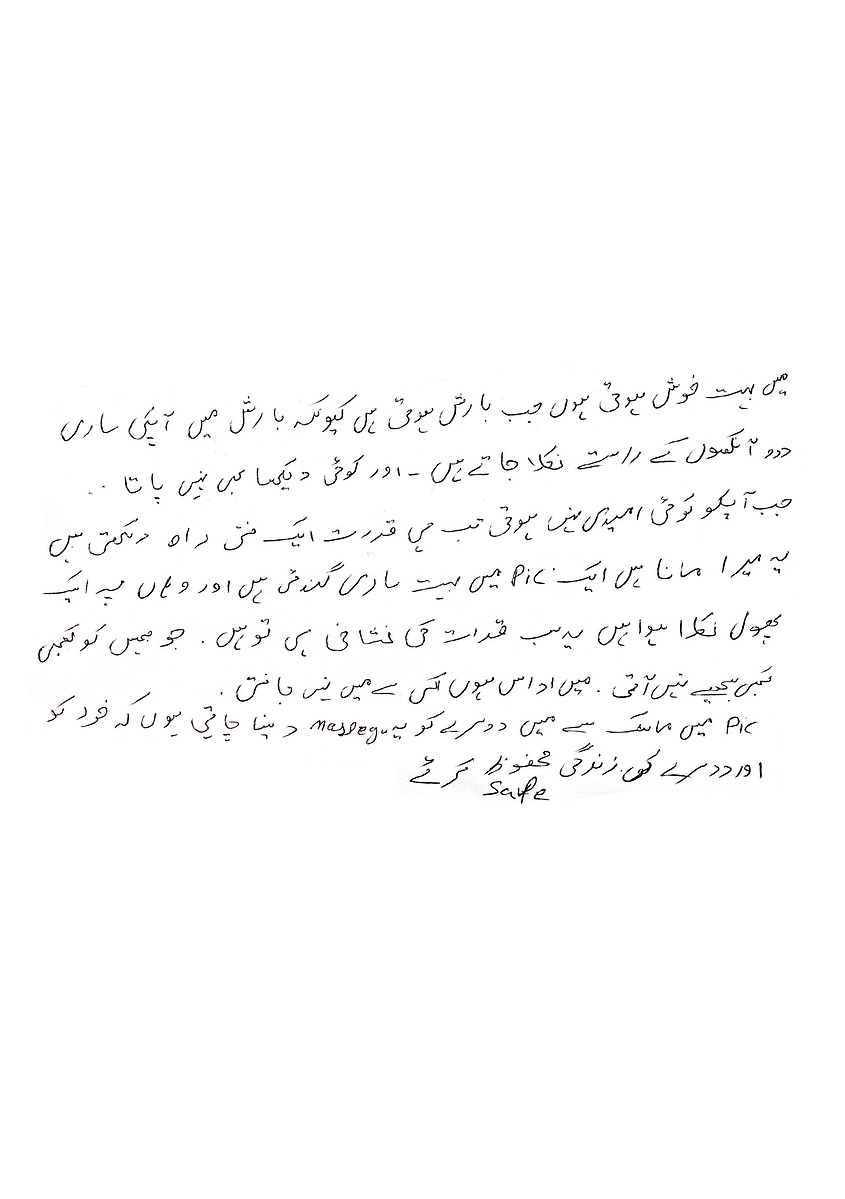 میں بہت خوش ہوتی ہوں جب بارش ہوتی ہیں کیونکہ بارش میں آپکی ساری
درد آنکھوں کے راستے نکلا جاتے ہیں - اور کوئی دیکھا بھی نہیں پاتا ..
جب آپکو کوئی امیدی نہیں ہوتی تب ہی قدرت ایک نئی راہ دیکھتی ہیں
یہ میرا مانا ہیں ایک Pic میں بہت ساری گندگی ہیں اور وہاں پہ ایک
پھول نکلا ہوا ہیں یہ سب قدرات کی نشانی ہی تو ہیں . جو ہمیں کو کبھی
سمجھ نہیں آتی . میں اداس ہوں کس سے میں نہیں جانتی .
Pic میں ماسک سے میں دوسرے کو یہ massege دینا چاہتی ہوں کہ خود کو
اور دوسرے کی زندگی محفوظ کرئے
Safe